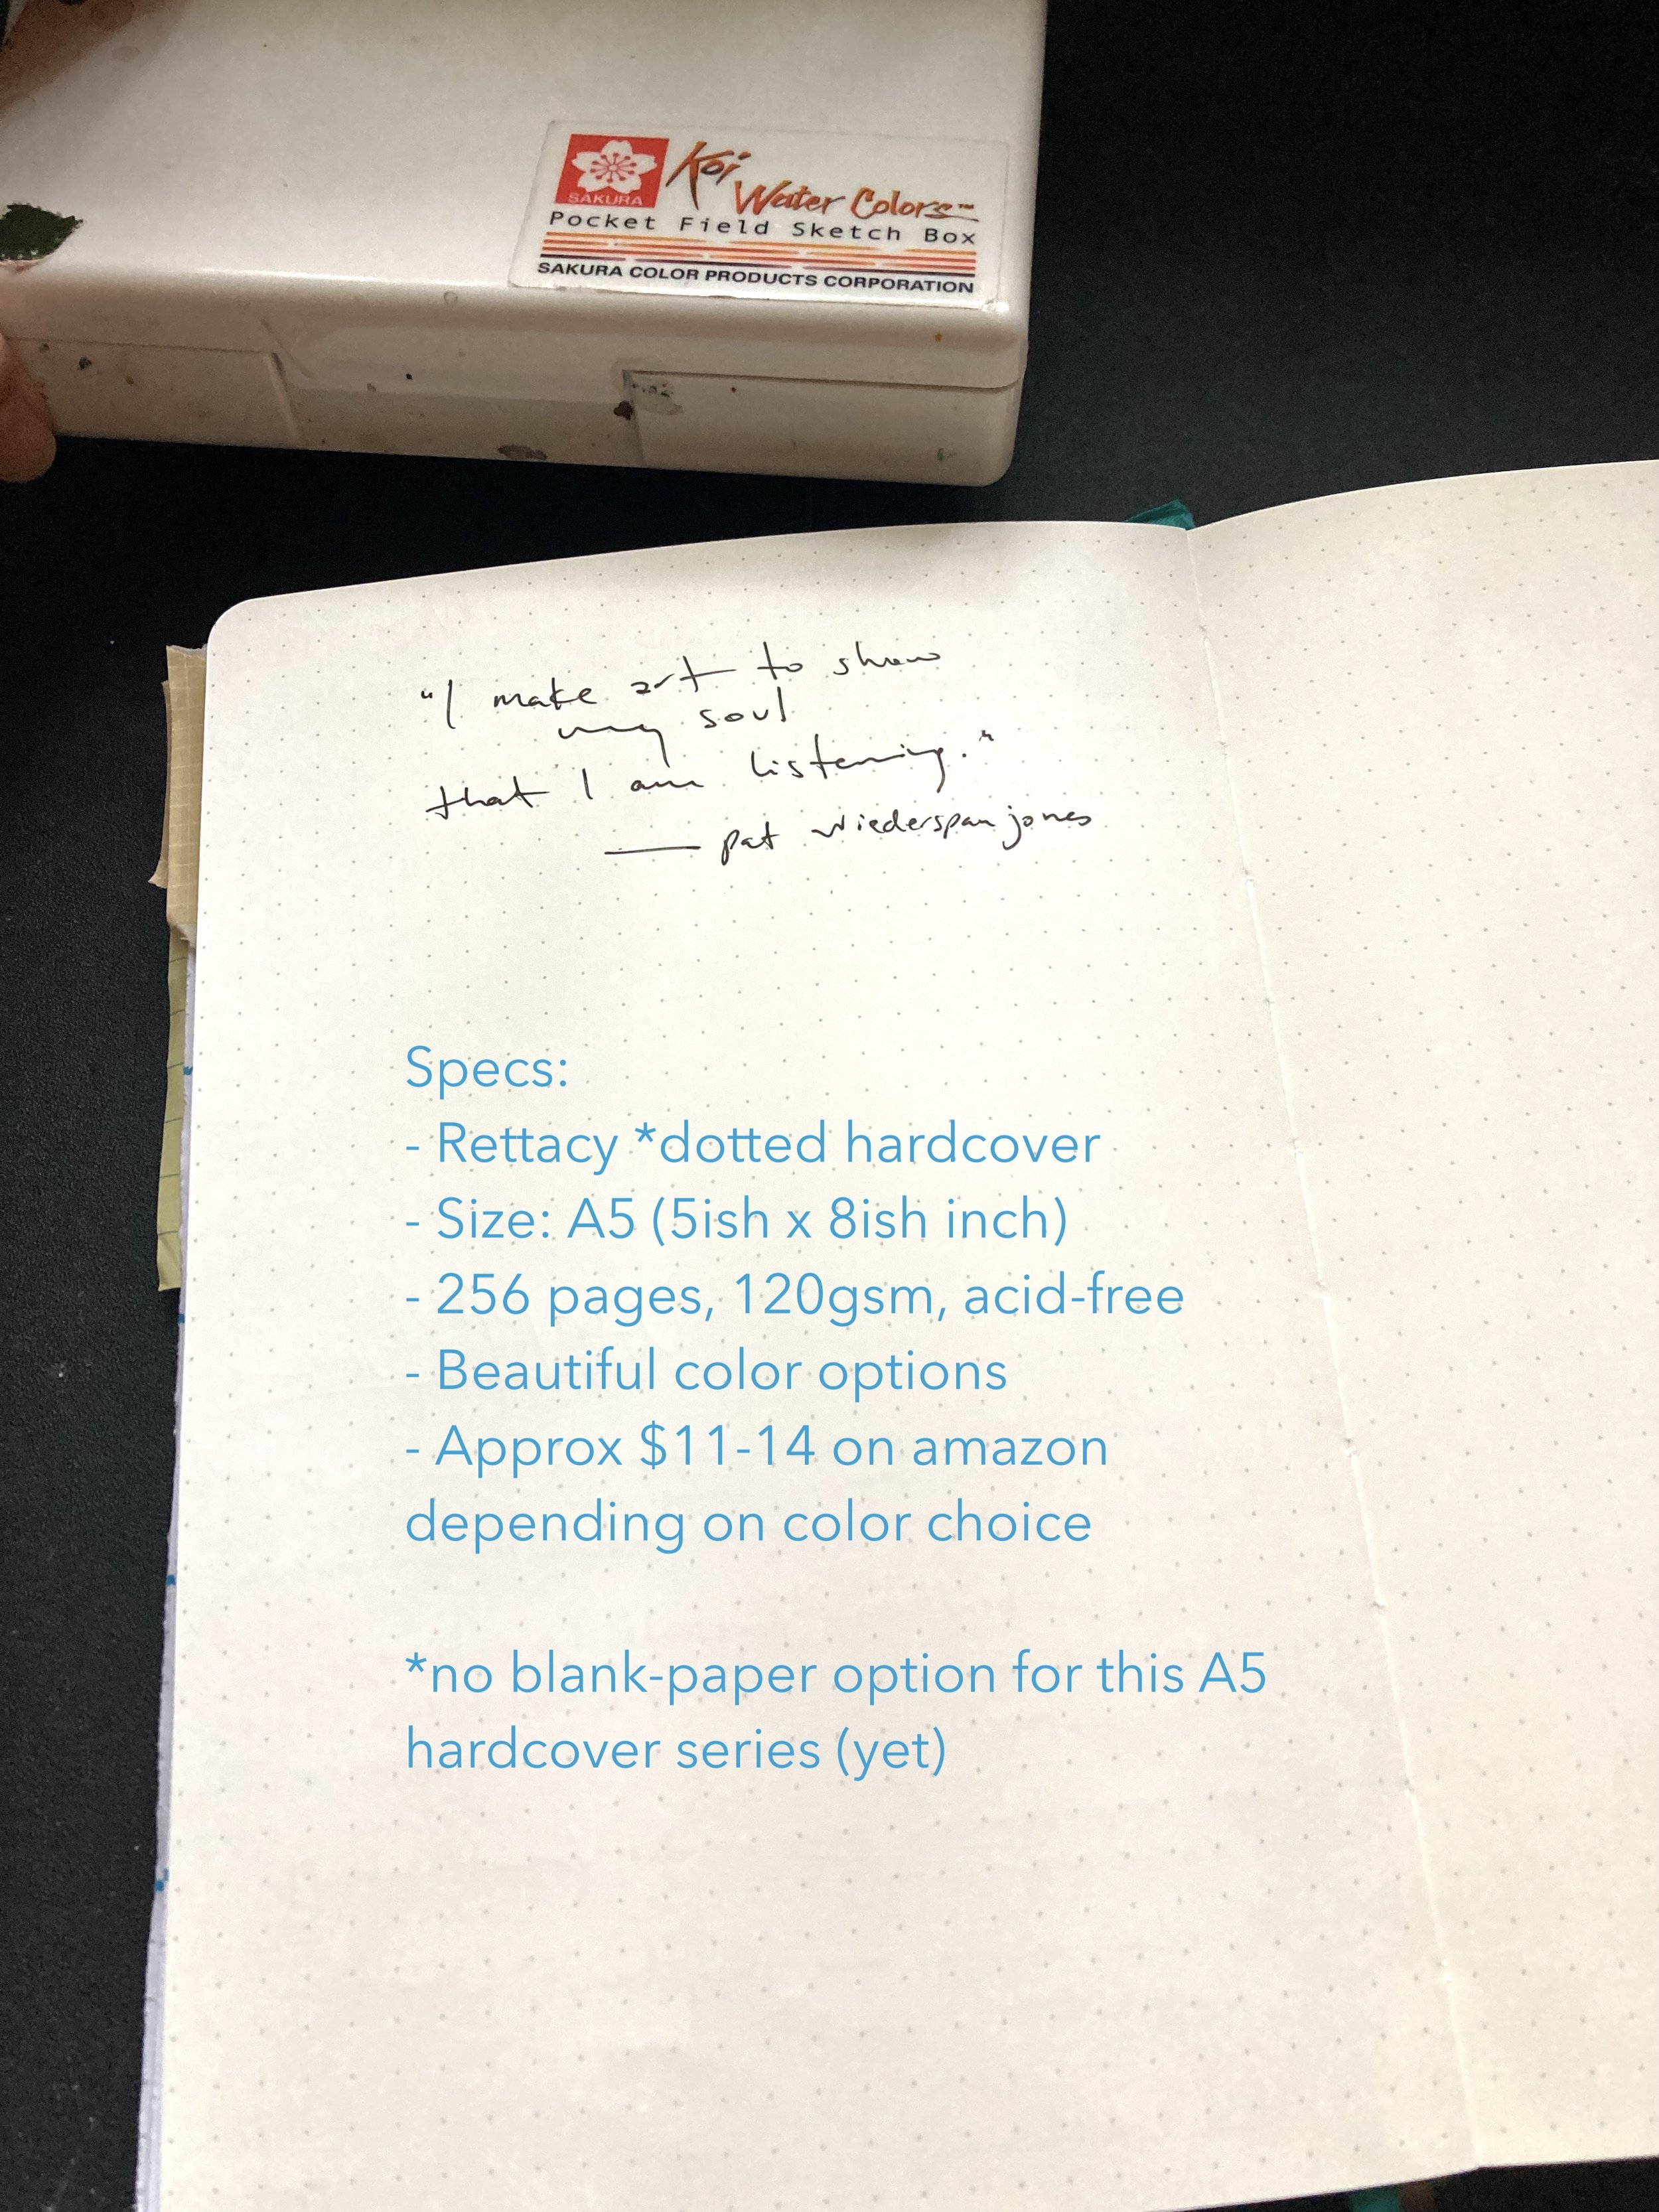 SAKURA
Koi
Water Colors™
Pocket Field Sketch Box
SAKURA COLOR PRODUCTS CORPORATION
"I make art to show
my soul
that I am listening."
— pat wiederspan jones
Specs:
- Rettacy *dotted hardcover
- Size: A5 (5ish x 8ish inch)
- 256 pages, 120gsm, acid-free
- Beautiful color options
- Approx $11-14 on amazon
depending on color choice
*no blank-paper option for this A5
hardcover series (yet)